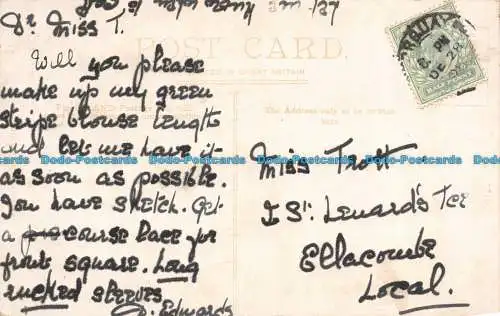 Dr Miss T.
Will you please
make up my green
stripe blouse length
and let me have it
as soon as possible.
You have sketch. Get
a course lace for
front square. Long
rucked sleeves
Edwards
POST CARD.
The Address only to be written
here
TORQUAY
PM
DE 28
Miss Trott
St. Lenard's Tce
Ellacombe
Local.
Dodo-Postcards Dodo-Postcards Dodo-Postcards Dodo-Postcards Dodo-Postcards